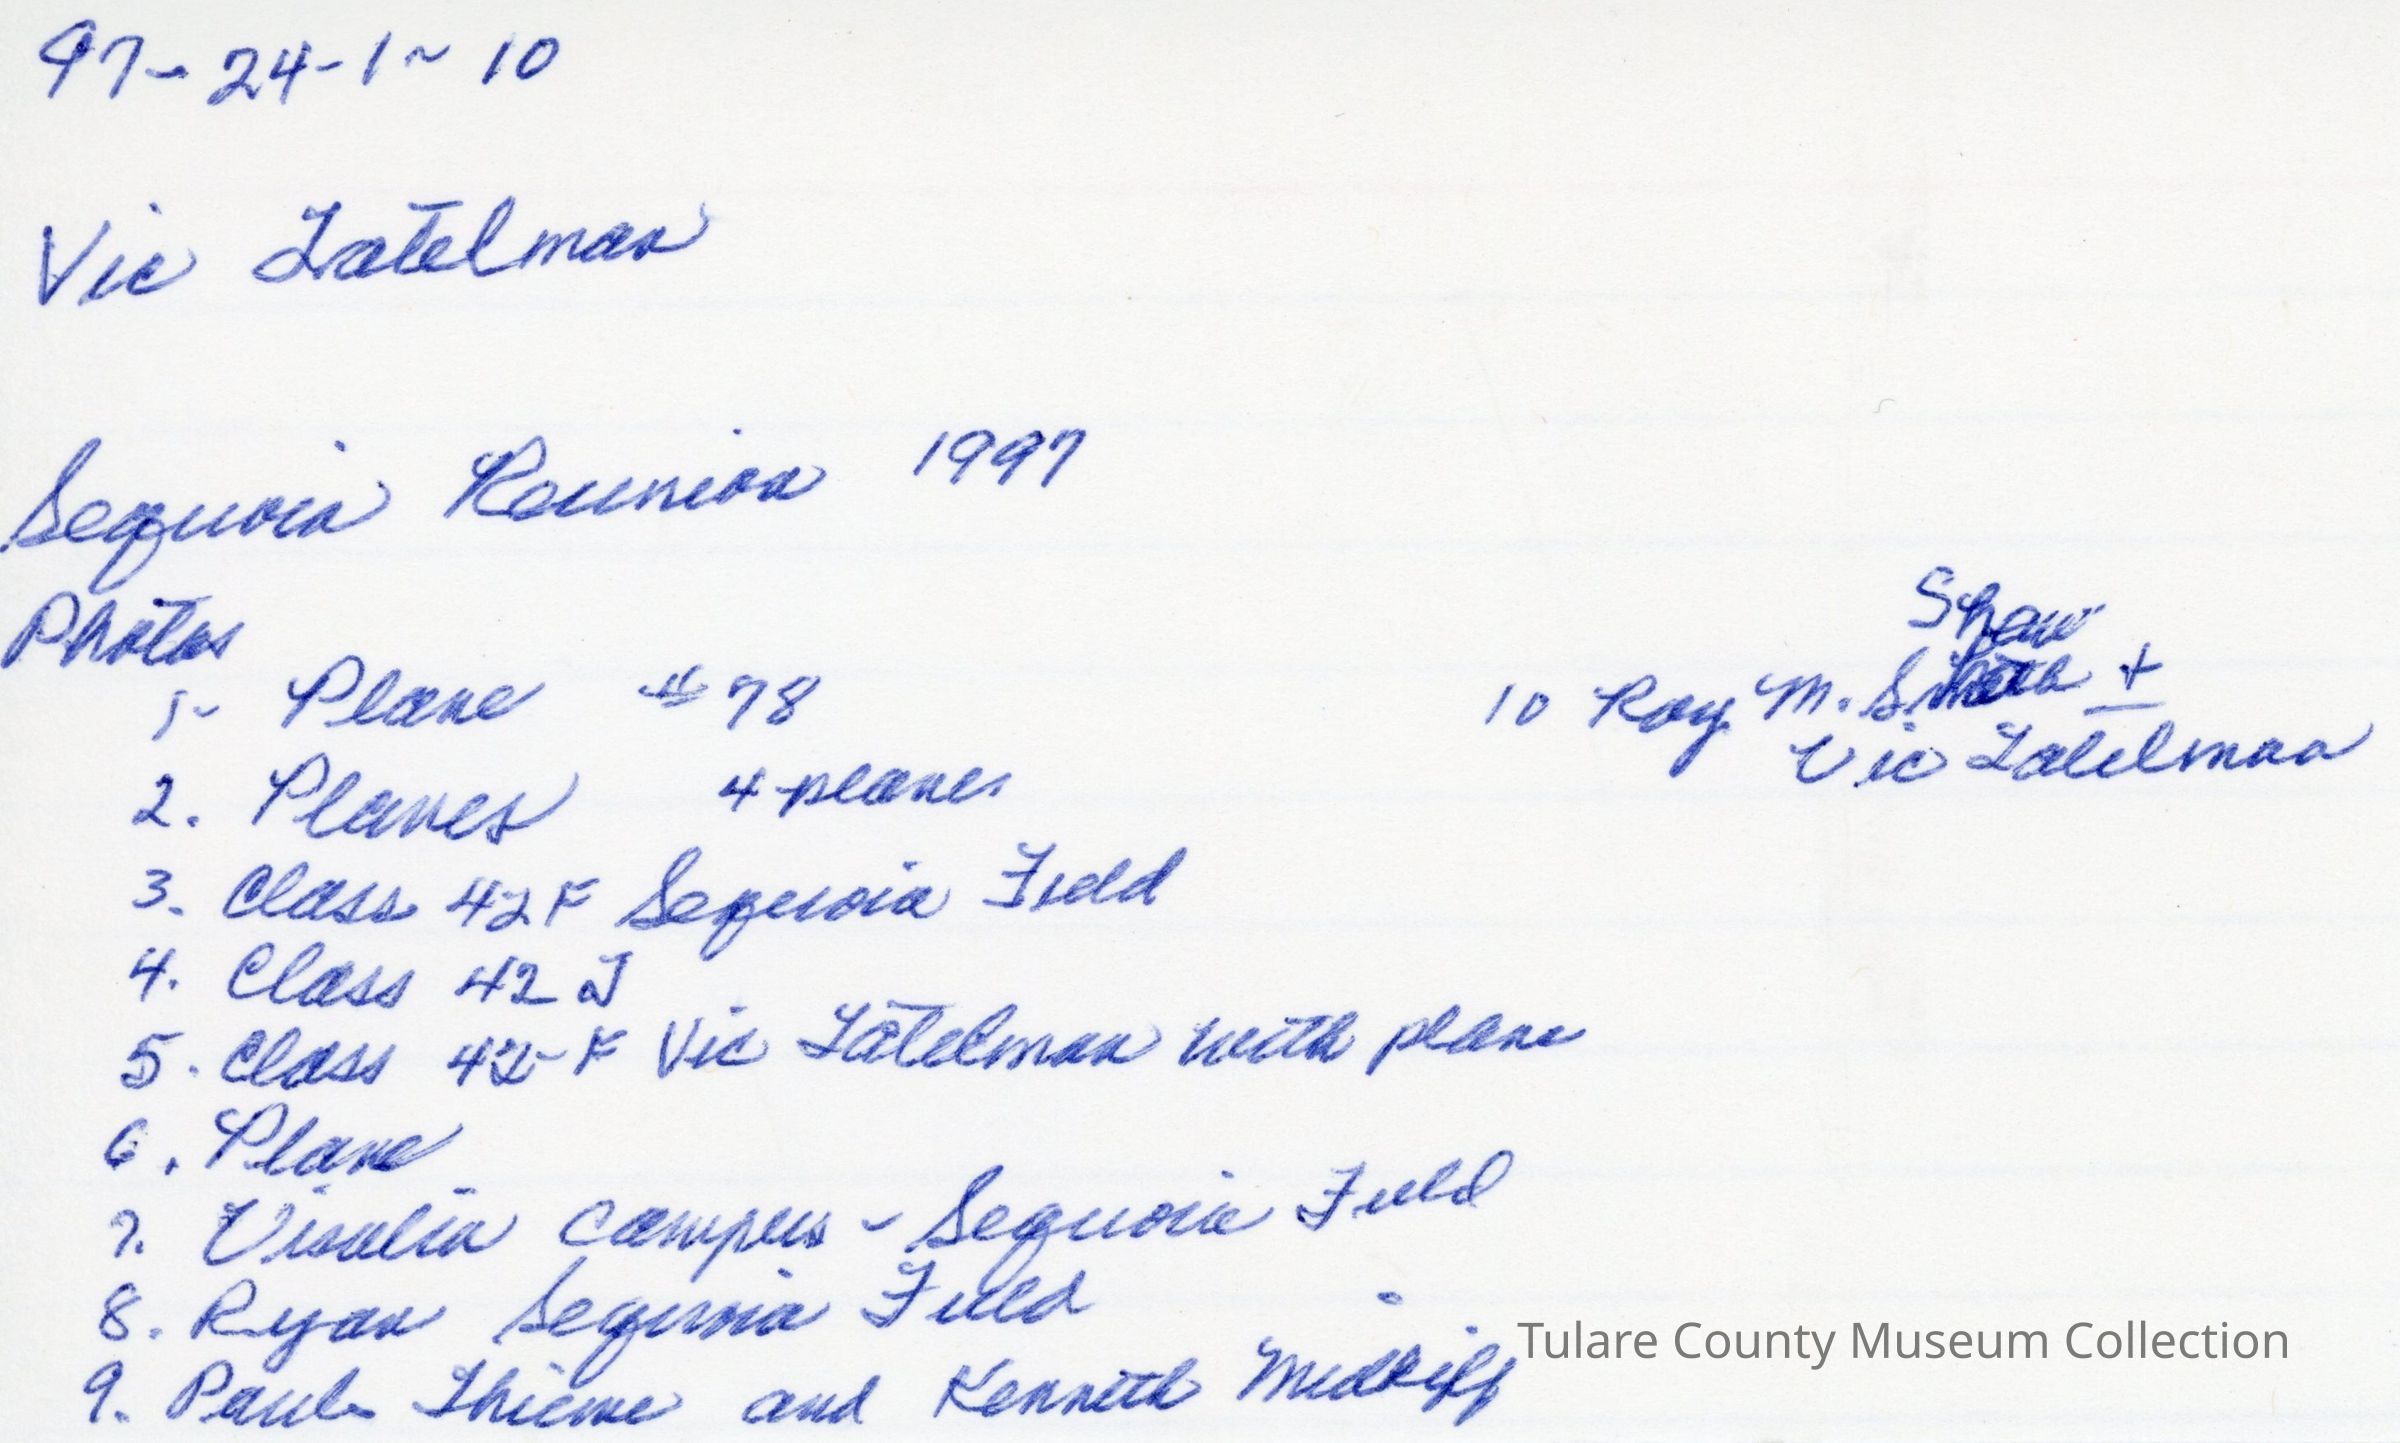 97-24-1~10
Vic Tatelman
Sequoia Reunion 1997
Photos
1- Plane #78
2. Planes 4-planes
3. Class 42F Sequoia Field
4. Class 42 J
5. Class 42-F Vic Tatelman with plane
6. Plane
7. Visalia Campus - Sequoia Field
8. Ryan Sequoia Field
9. Paul Thieme and Kenneth Midkiff
Shaw
10 Roy M. Smith +
Vic Tatelman
Tulare County Museum Collection